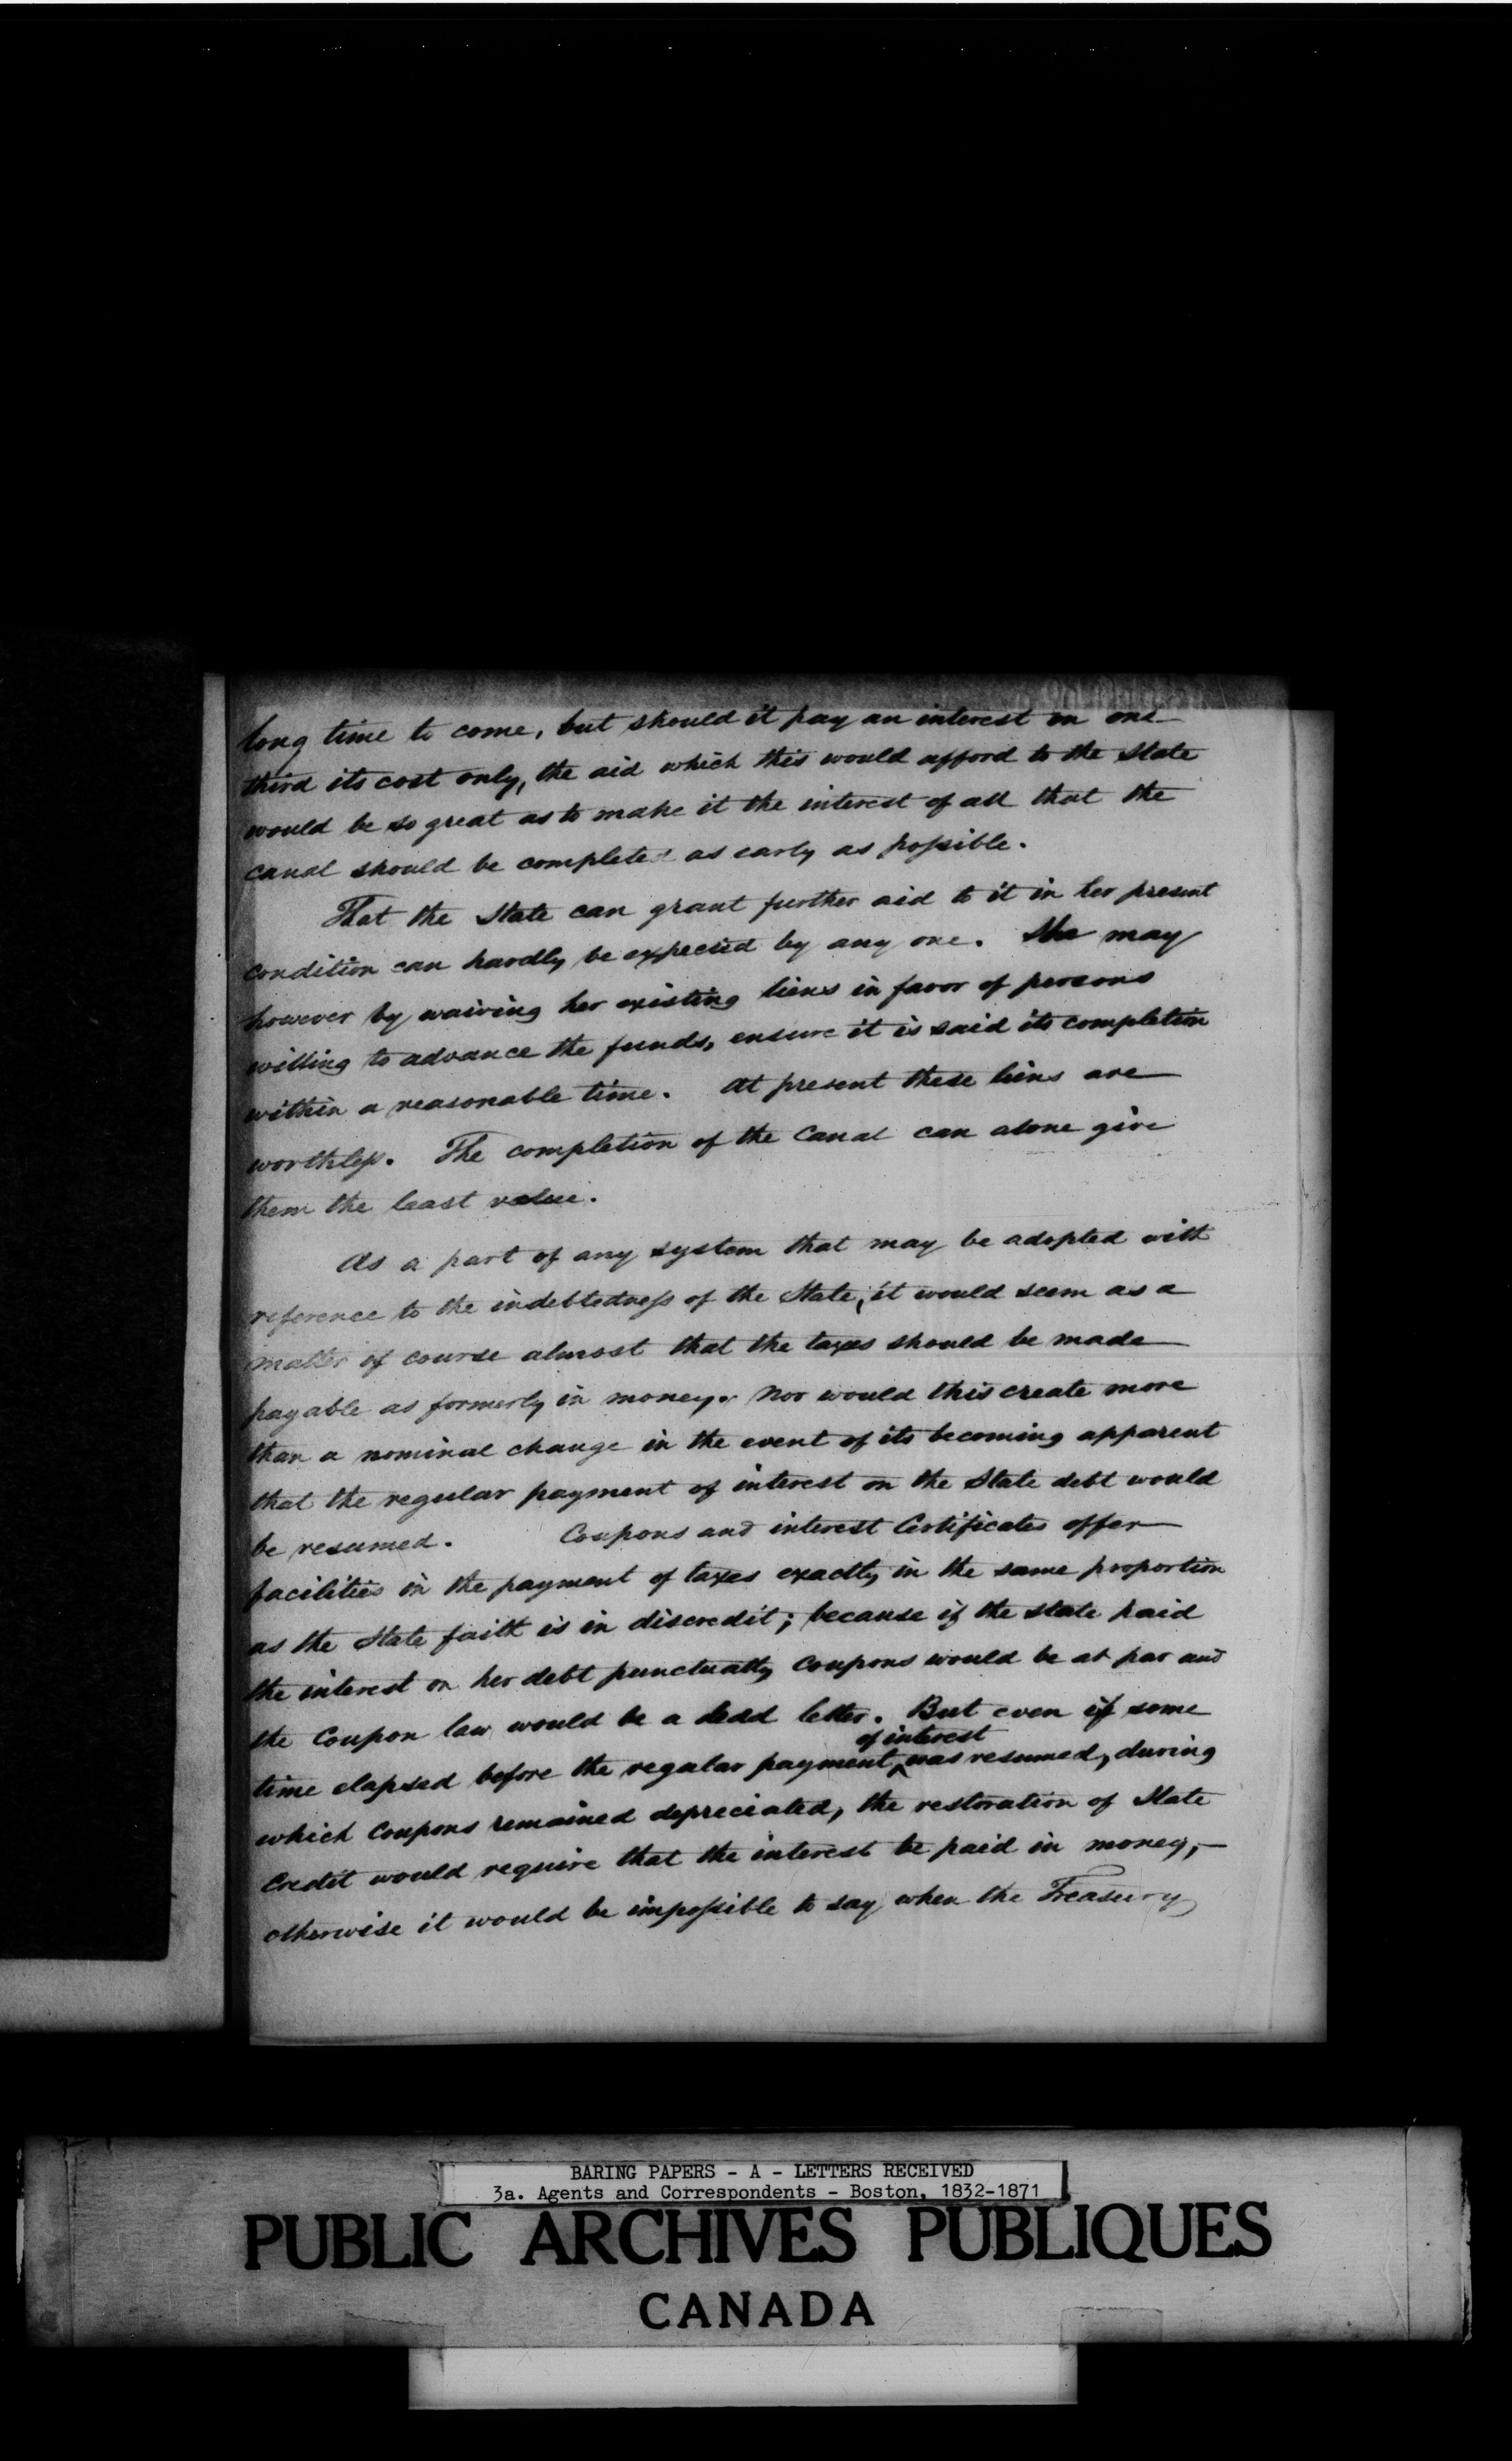 long time to come, but should it pay an interest on one
third its cost only, the aid which this would afford to the State
would be so great as to make it the interest of all that the
canal should be completed as early as possible.
That the State can grant further aid to it in her present
condition can hardly be expected by any one. She may
however by waiving her existing liens in favor of persons
willing to advance the funds, ensure it is said its completion
within a reasonable time. At present these liens are
worthless. The completion of the Canal can alone give
them the least value.
As a part of any system that may be adopted with
reference to the indebtedness of the State, it would seem as a
matter of course almost that the taxes should be made
payable as formerly in money. Nor would this create more
than a nominal change in the event of its becoming apparent
that the regular payment of interest on the State debt would
be resumed. Coupons and interest Certificates offer
facilities in the payment of taxes exactly in the same proportion
as the State faith is in discredit; because if the State paid
the interest on her debt punctually Coupons would be at par and
the Coupon law would be a dead letter. But even if some
of interest
time elapsed before the regular payment ^ was resumed, during
which Coupons remained depreciated, the restoration of State
Credit would require that the interest be paid in money, –
otherwise it would be impossible to say when the Treasury
BARING PAPERS - A - LETTERS RECEIVED
3a. Agents and Correspondents - Boston, 1832-1871
PUBLIC ARCHIVES PUBLIQUES
CANADA